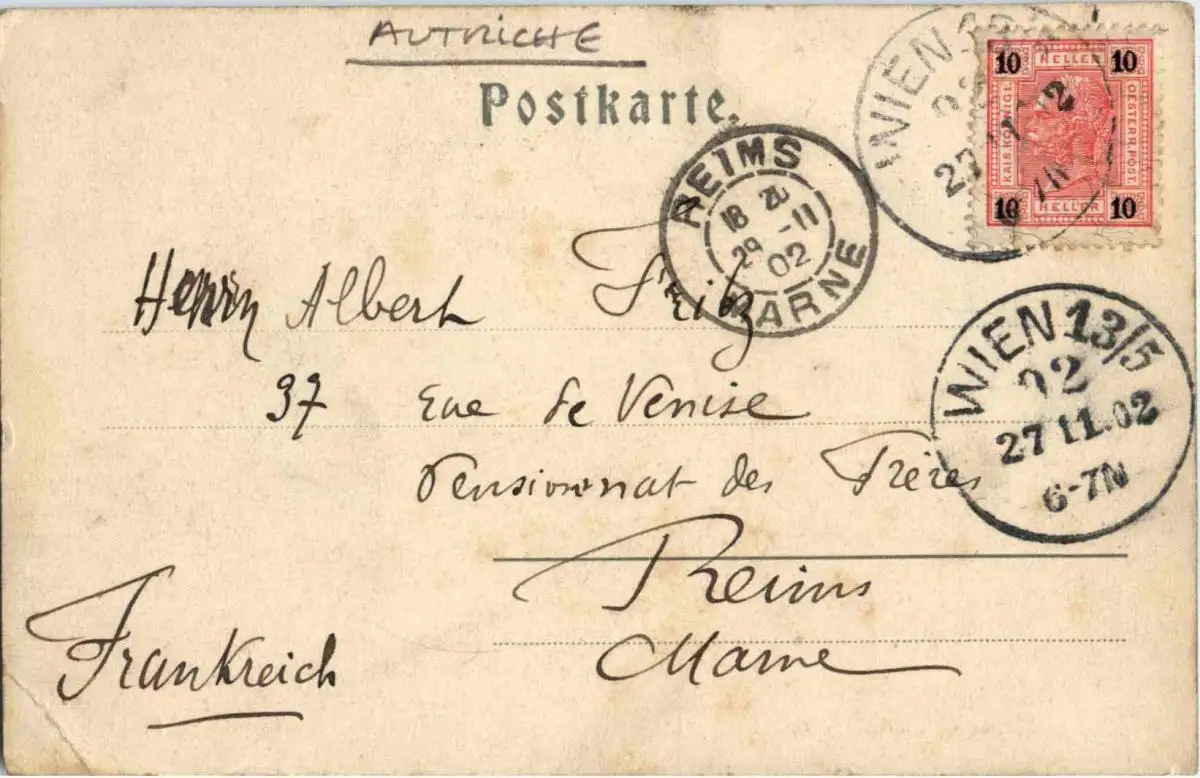 AUTRICHE
Postkarte.
WIEN
2
10 HELLER 10
KAIS. KÖNIGL.
OESTERR. POST.
10 HELLER 10
REIMS
18
29 -11
02
MARNE
Herrn Albert Fritz
37 Rue de Venise
Pensionnat des Frères
Reims
Marne
Frankreich
WIEN 13/5
02
27 11.02
6-7N